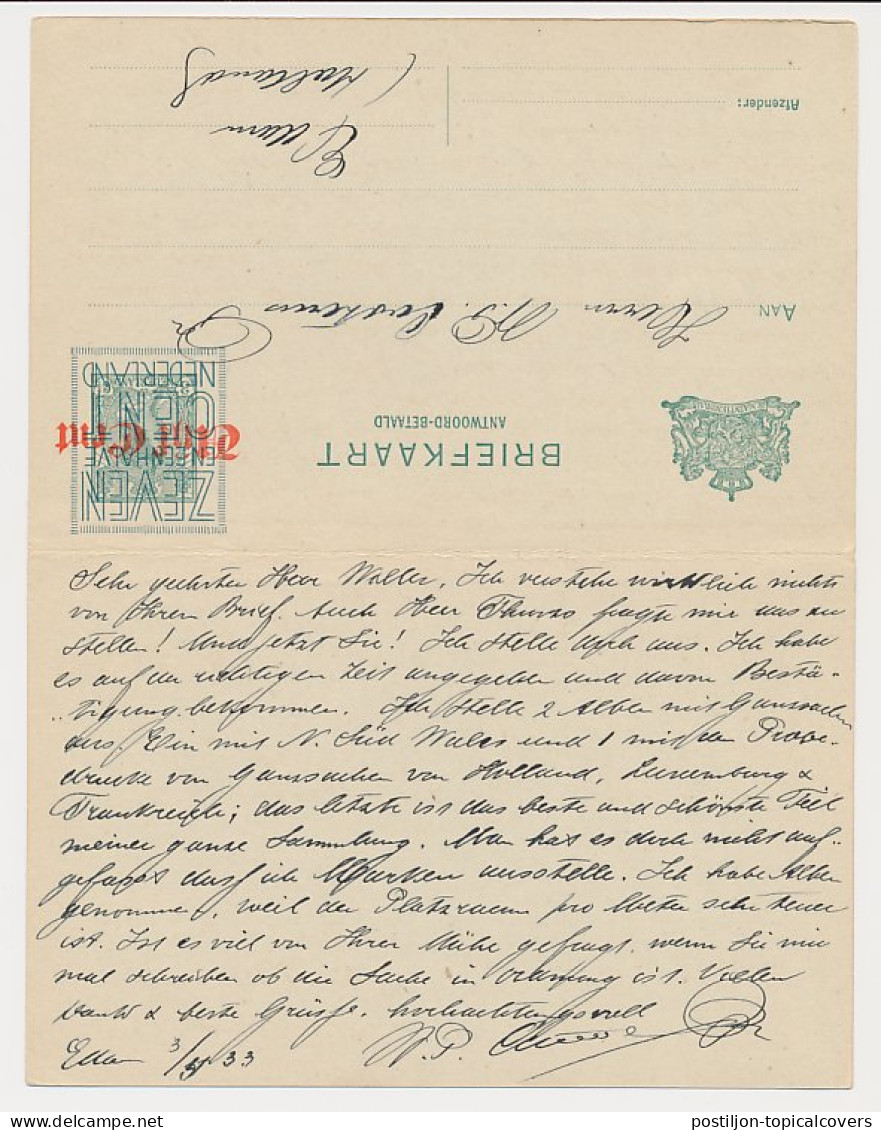 BRIEFKAART
ANTWOORD-BETAALD
ZEVEN
EN EEN HALVE
CENT
NEDERLAND
AAN Herrn W.P.
Edam
(Holland)
Afzender:
Sehr geehrter Herr Woller, Ich verstehe wirklich nichts
von Ihrem Brief. Auch Herr fragte mir aus zu
stellen! Und jetzt Sie! Ich stelle doch aus. Ich habe
es auf der richtigen Zeit angegeben und davon Bestä-
tigung bekommen. Ich stelle 2 Alben mit Ganzsachen
aus. Ein mit N. Süd Wales und 1 mit den Probe-
drucke von Ganzsachen von Holland, Luxemburg &
Frankreich; das letzte ist das beste und schönste Teil
meiner ganze Sammlung. Man hat es doch nicht auf-
gefasst dass ich Marken ausstelle. Ich habe Alben
genommen, weil der Platzraum pro Meter sehr teuer
ist. Ist es viel von Ihrer Mühe gefragt, wenn Sie mir
mal schreiben ob die Sache in ordnung ist. Vielen
Dank & beste Grüsse, hochachtungsvoll
Edam 3/5 33 W.P.
postiljon-topicalcovers